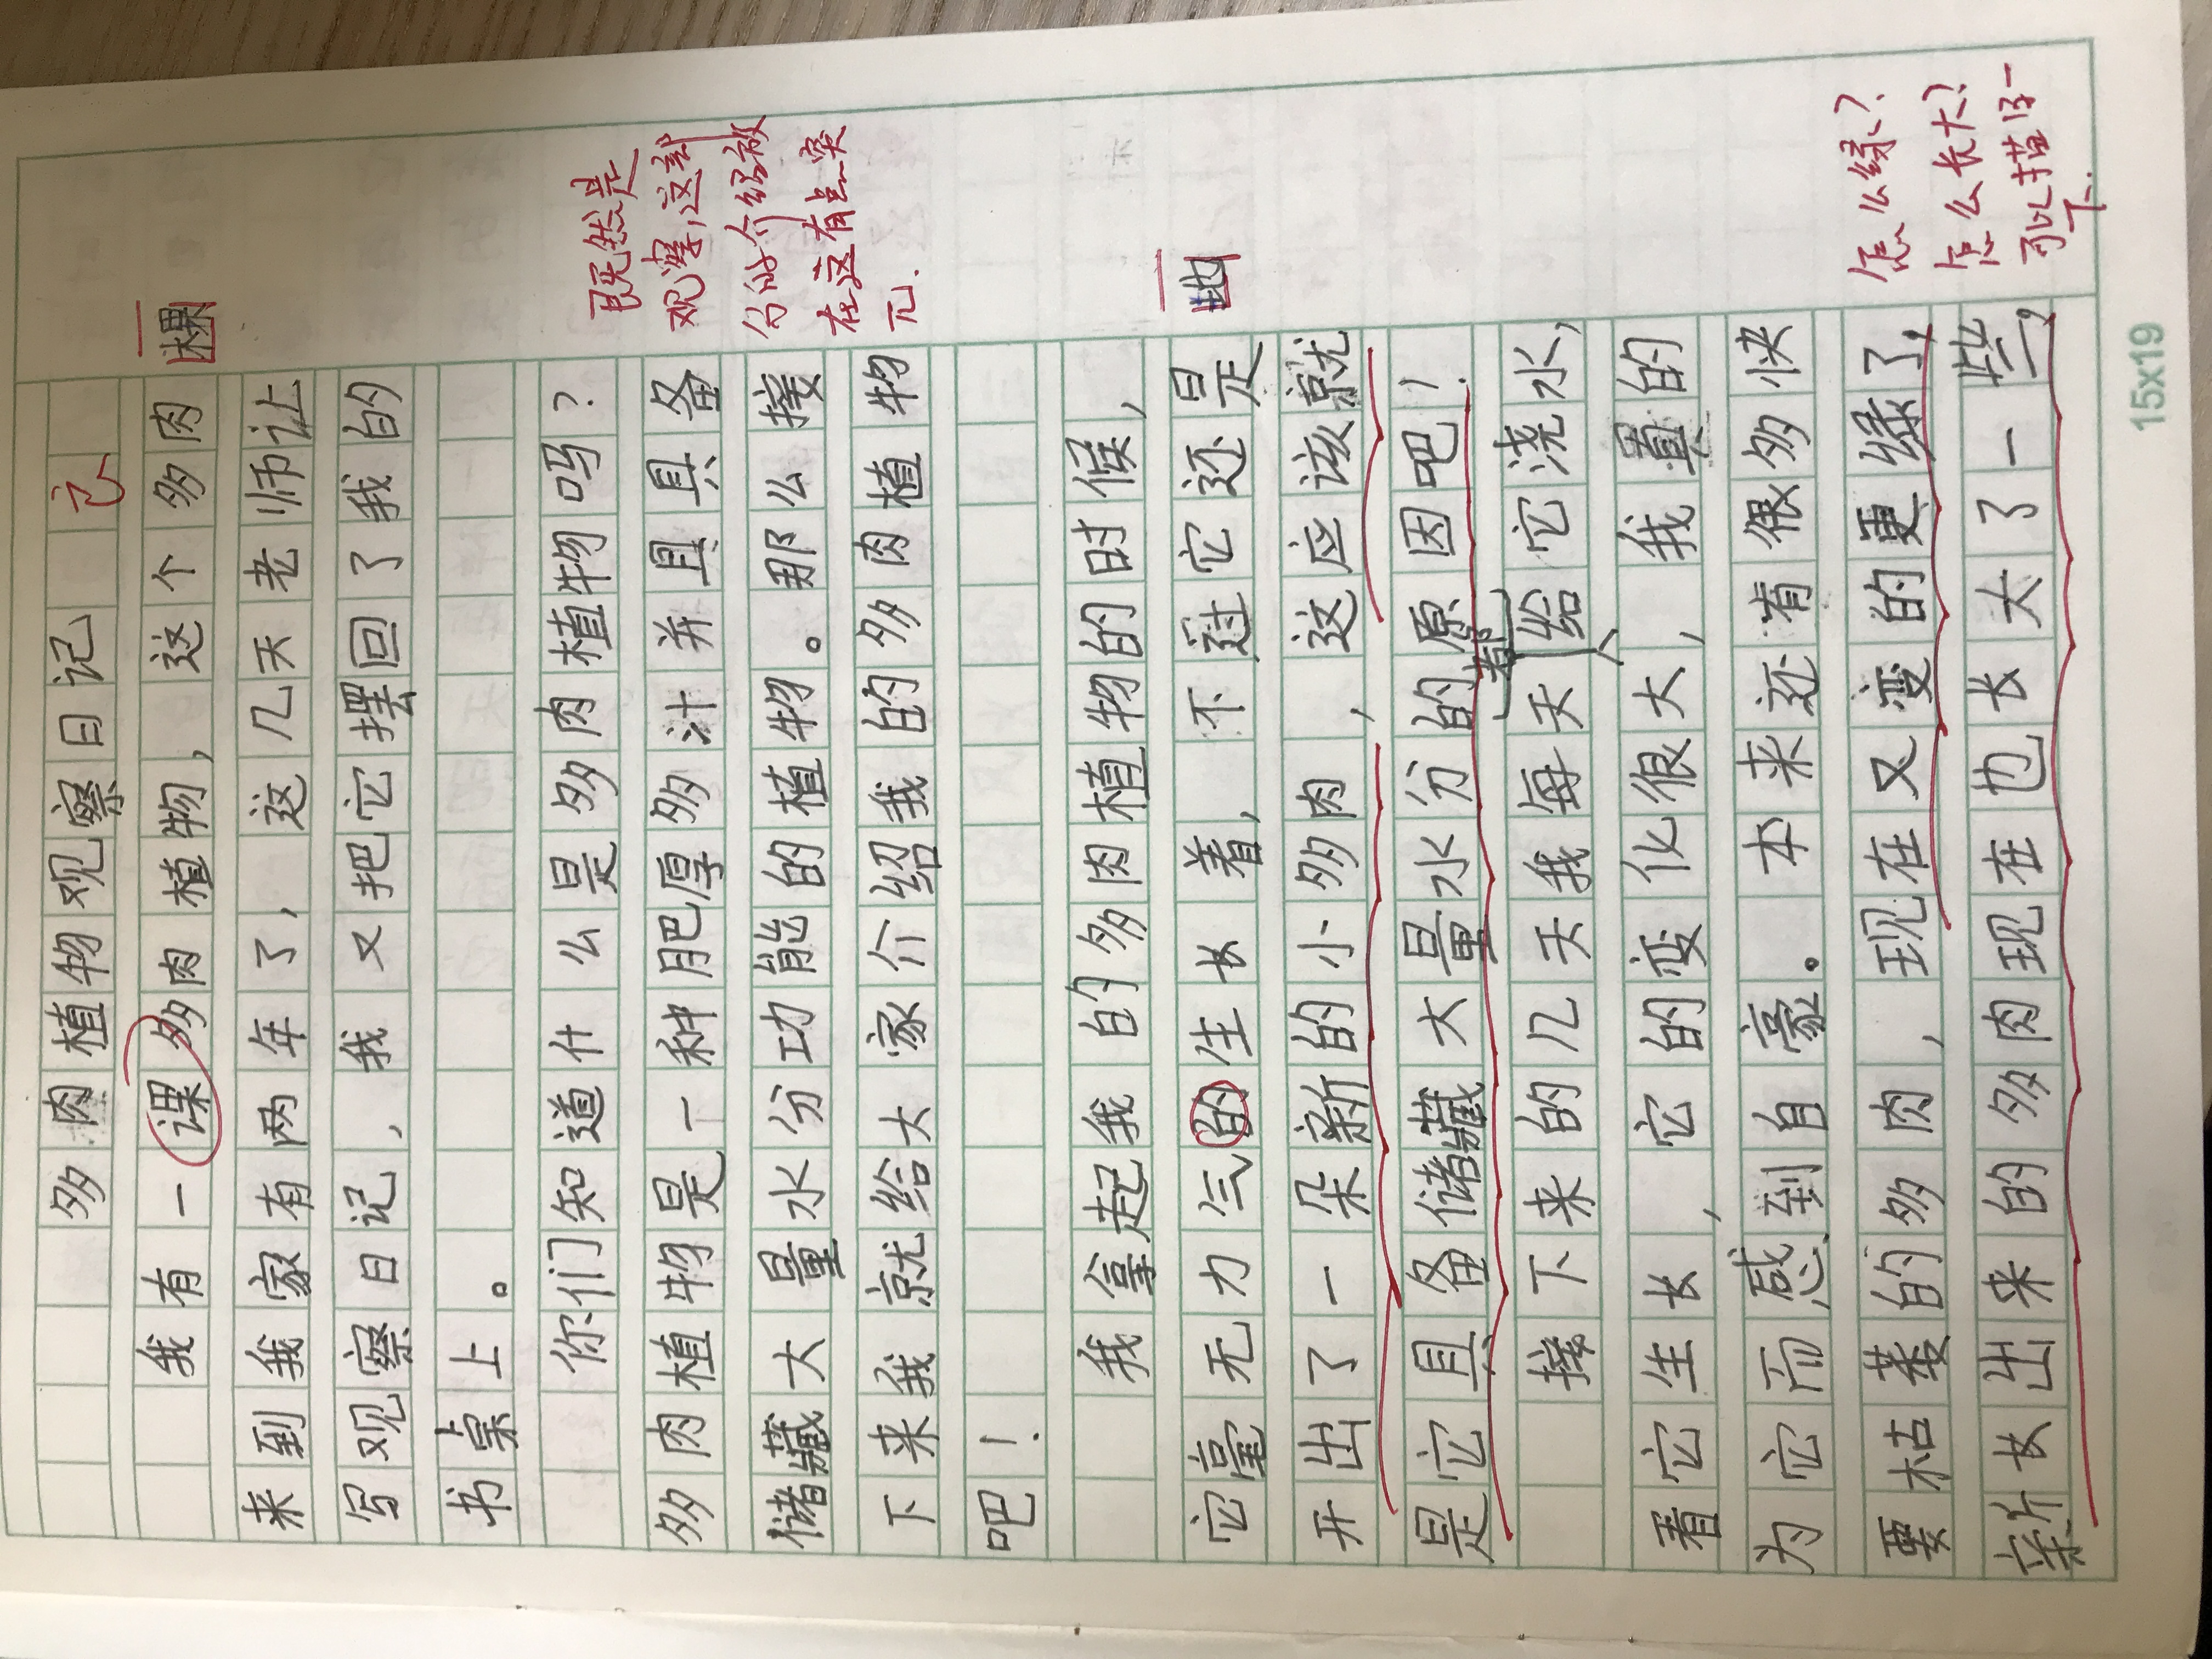 多肉植物观察日记
我有一课多肉植物，这个多肉
棵
来到我家有两年了，这几天老师让
写观察日记，我又把它摆回了我的
书桌上。
你们知道什么是多肉植物吗？
多肉植物是一种肥厚多汁并且具备
储藏大量水分功能的植物。那么接
下来我就给大家介绍我的多肉植物
吧！
既然是
观察,这部
分的介绍放
在这有点突
兀.
我拿起我的多肉植物的时候，
它毫无力气的生长着，不过它还是
地
开出了一朵新的小多肉，这应该就
是它具备储藏大量水分的原因吧！
都
接下来的几天我每天给它浇水，
看它生长，它的变化很大，我真的
为它而感到自豪。本来还有很多快
要枯萎的多肉，现在又变的更绿了，
新长出来的多肉现在也长大了一些。
怎么绿？
怎么长大？
可以描写一
下.
15x19